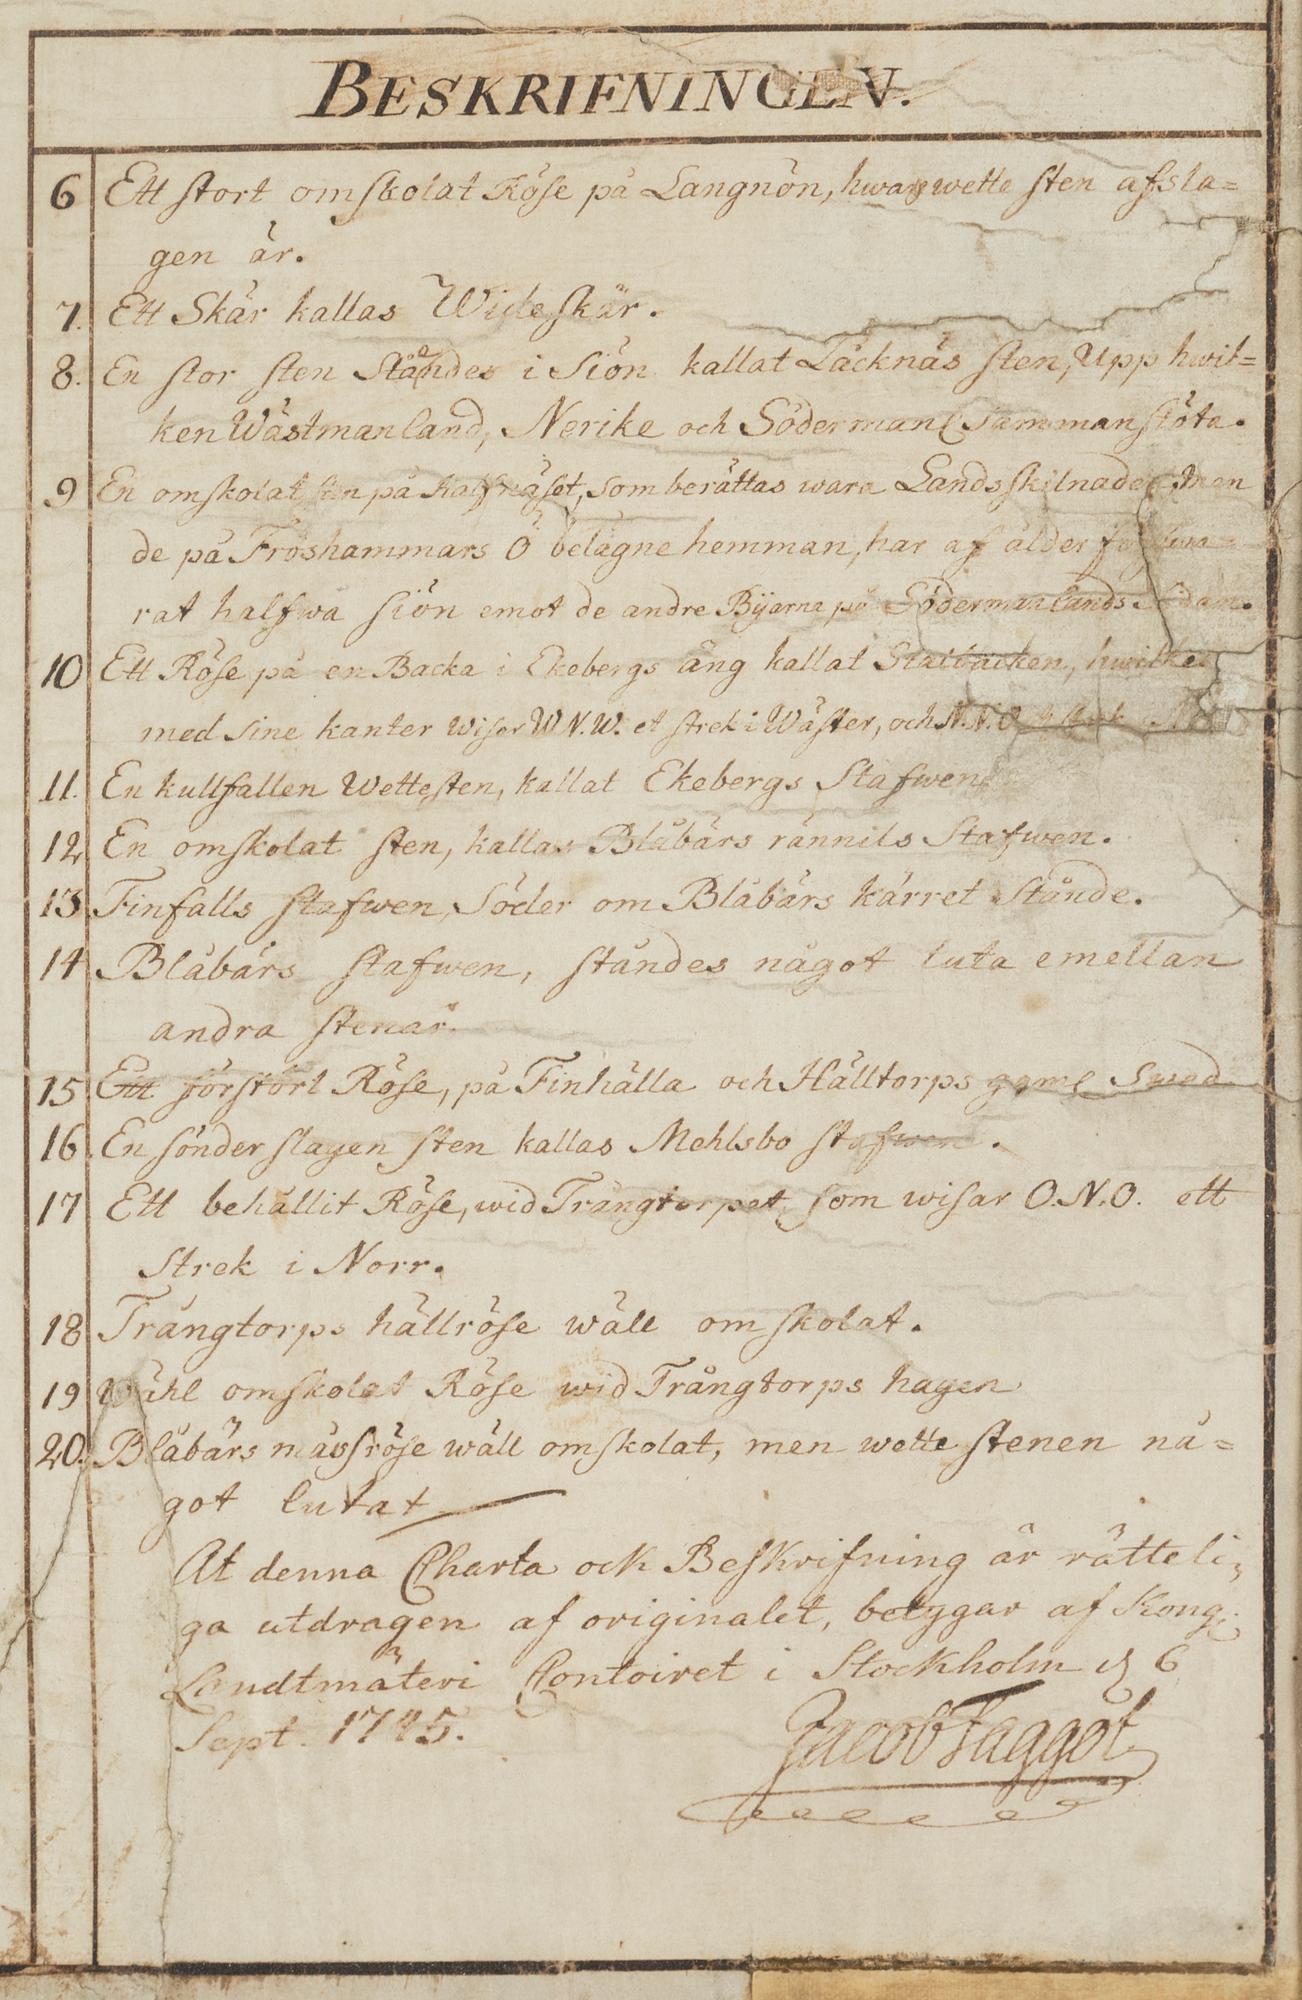 BESKRIFNINGEN.
6 Ett stort omskolat Röse på Langnön, hwars wette sten afsla=
gen är.
7. Ett Skär kallas Wideskär.
8. En stor sten Ståndes i Siön kallat Täcknäs sten, Upp hwil=
ken Wästmanland, Nerike och Söderman Sammanstöta.
9 En omskolat sten på Kalfnäset, som berättas wara Landsskilnaden, Men
de på Fröshammars Ö belägne hemman, har af ålder
rat halfwa siön emot de andre Byarna på Södermanlands Sidan.
10 Ett Röse på en Backa i Ekebergs äng kallat Stalbacken, hwilket
med sine kanter wiser W.N.W. et strek i Wäster, och N.N.O.
11. En kullfallen Wettesten, kallat Ekebergs Stafwen
12 En omskolat sten, kallas Blåbärs rännils Stafwen.
13 Finfalls stafwen, Söder om Blåbärs kärret Stånde.
14 Blåbärs stafwen, ståndes något luta emellan
andra stenar.
15 Ett förstört Röse, på Finhälla och Hälltorps gaml Swed
16. En sönderslagen sten kallas Mehlsbo stafwen.
17 Ett behållit Röse, wid Trångtorpet, som wisar O.N.O. ett
strek i Norr.
18 Trångtorps hällröse wäll omskolat.
19 Wähl omskolat Röse wid Trångtorps hagen
20. Blåbärs mässröse wäll omskolat, men wette stenen nå=
got lutat
At denna Charta ock Beskrifning är rätteli=
ga utdragen af originalet, betygar af Kongl.
Landtmäteri Contoiret i Stockholm d. 6
Sept. 1745.
Jacob Faggot